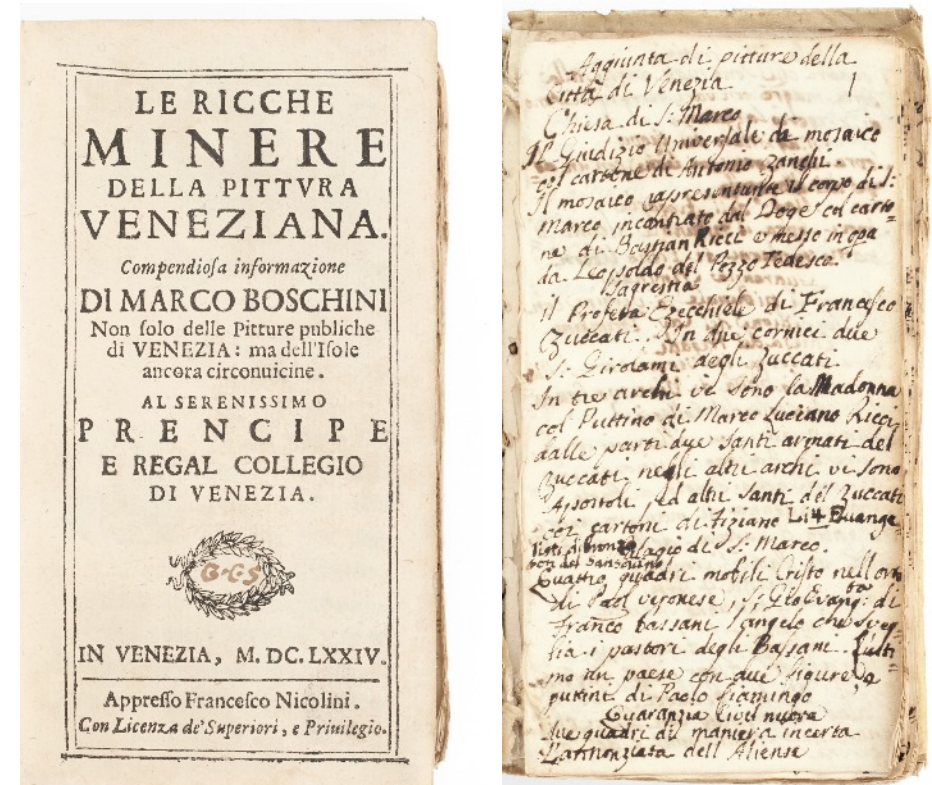 LE RICCHE
MINERE
DELLA PITTVRA
VENEZIANA.
Compendioſa informazione
DI MARCO BOSCHINI
Non ſolo delle Pitture publiche
di VENEZIA: ma dell'Iſole
ancora circonuicine.
AL SERENISSIMO
PRENCIPE
E REGAL COLLEGIO
DI VENEZIA.
G·C·S
IN VENEZIA, M. DC. LXXIV.
Appreſſo Franceſco Nicolini.
Con Licenza de' Superiori, e Priuilegio.
Aggiunta di pitture della
Città di Venezia
1
Chiesa di S: Marco
Il Giudizio Universale di mosaico
col cartone di Antonio Zanchi.
Il mosaico rappresentante il corpo di S:
Marco incontrato dal Doge col carto=
ne di Bastian Ricci e messo in opa
da Leopoldo dal Pozzo Tedesco.
Sagrestia
il Profeta Ezecchiele di Francesco
Zuccati. In due cornici due
S: Girolami degli Zuccati
In tre archi vi sono la Madonna
col Puttino di Marco Luciano Ricci
dalle parti due Santi armati del
Zuccati negli altri archi vi sono
Apostoli ed altri Santi del Zuccati
coi cartoni di Tiziano Li 4 Euange
listi di bronzo
del Sansouino
di S: Marco.
Quattro quadri mobili Cristo nell'orto
di Paol veronese, S: Gio Evang:ta di
Franco Bassani l'angelo che sveg=
lia i pastori degli Bassani. L'ulti
mo un paese con due figure e
puttini di Paolo fiamingo
Quaranzia Civil nuova
due quadri di maniera incerta
L'annonziata dell Aliense